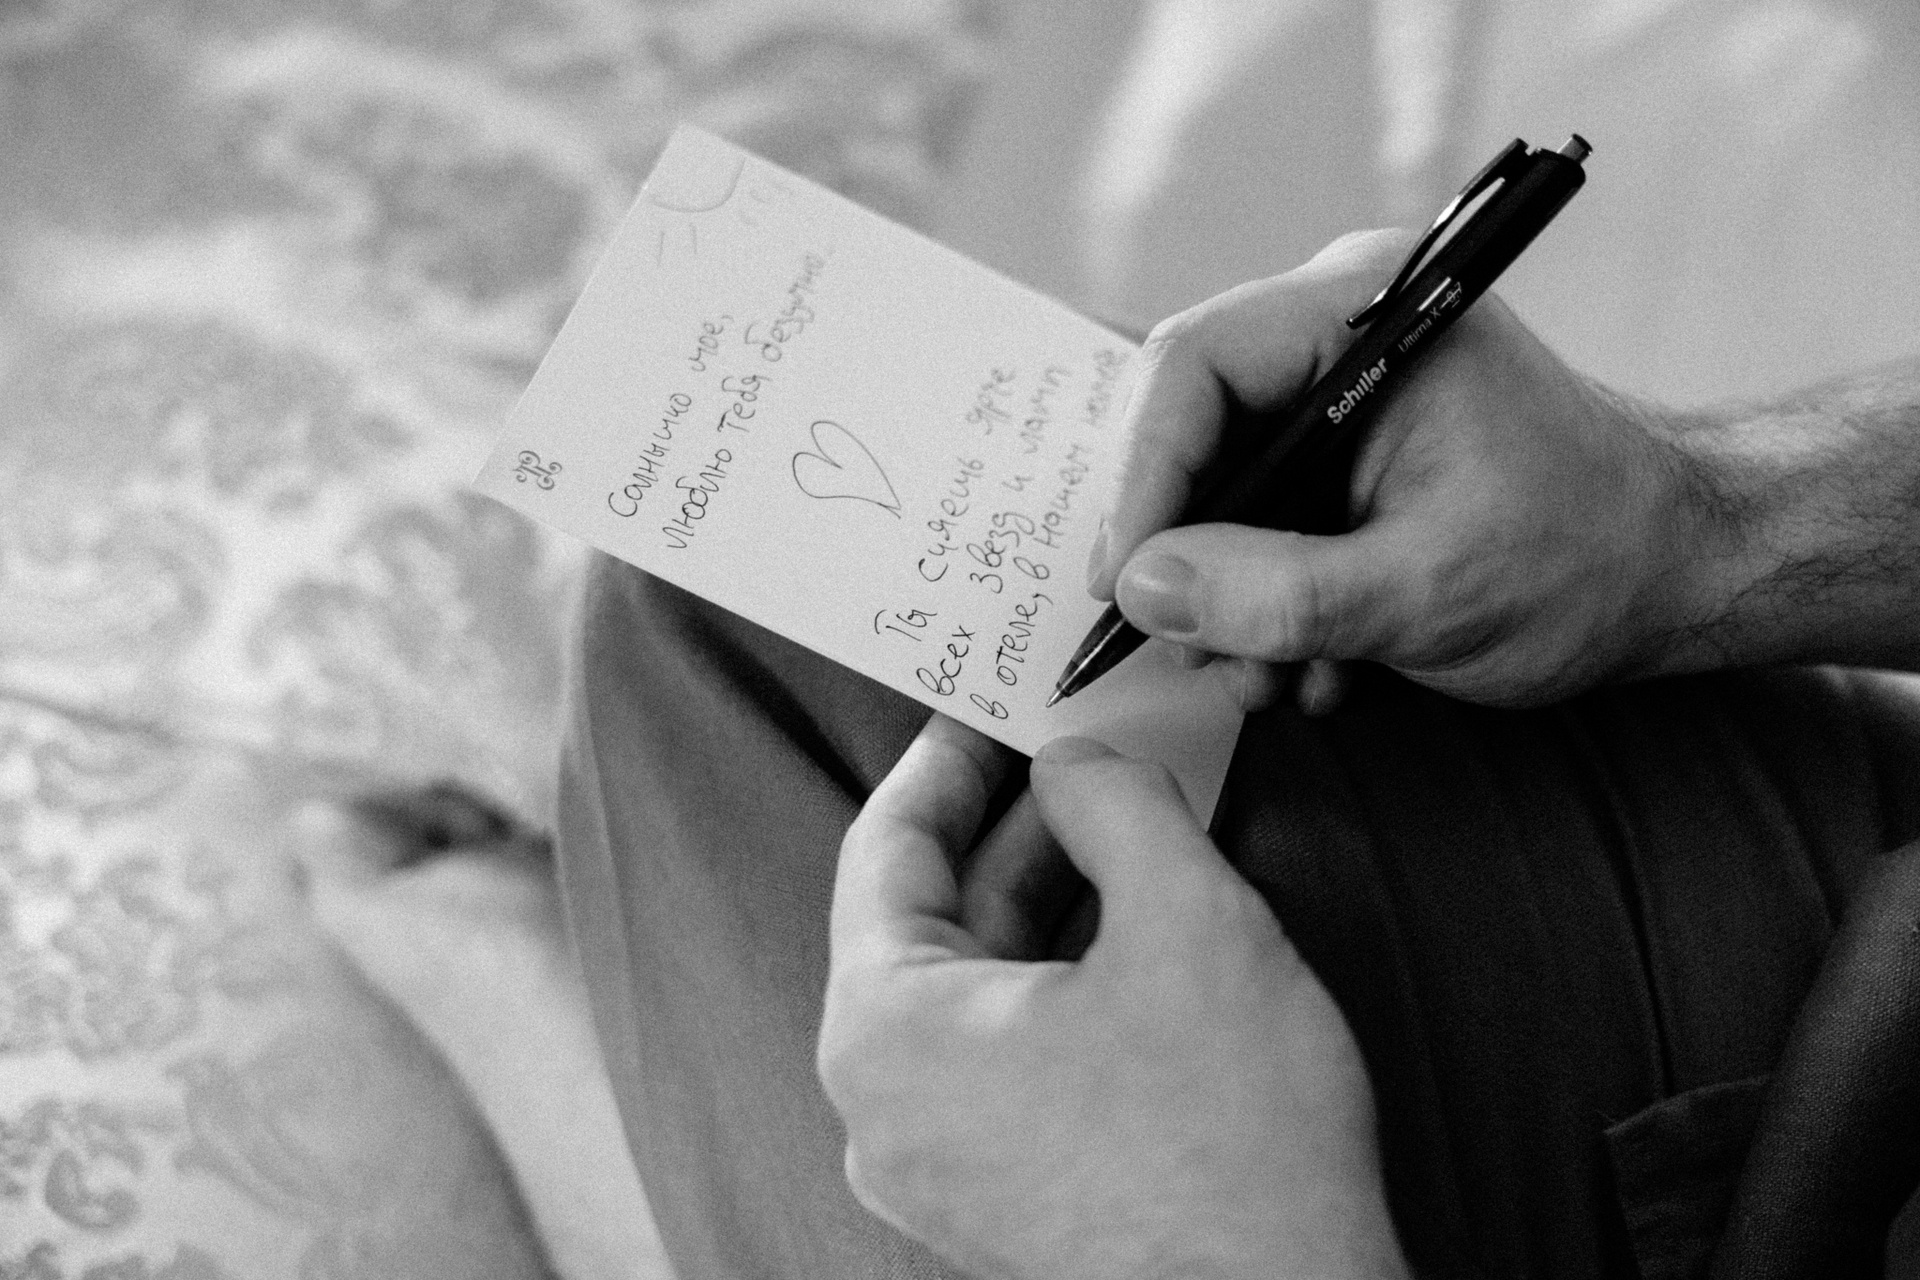 Солнышко мое,
люблю тебя безумно.
Ты сияешь ярче
всех звезд и ламп
в отеле, в нашем
Schiller Ultima X